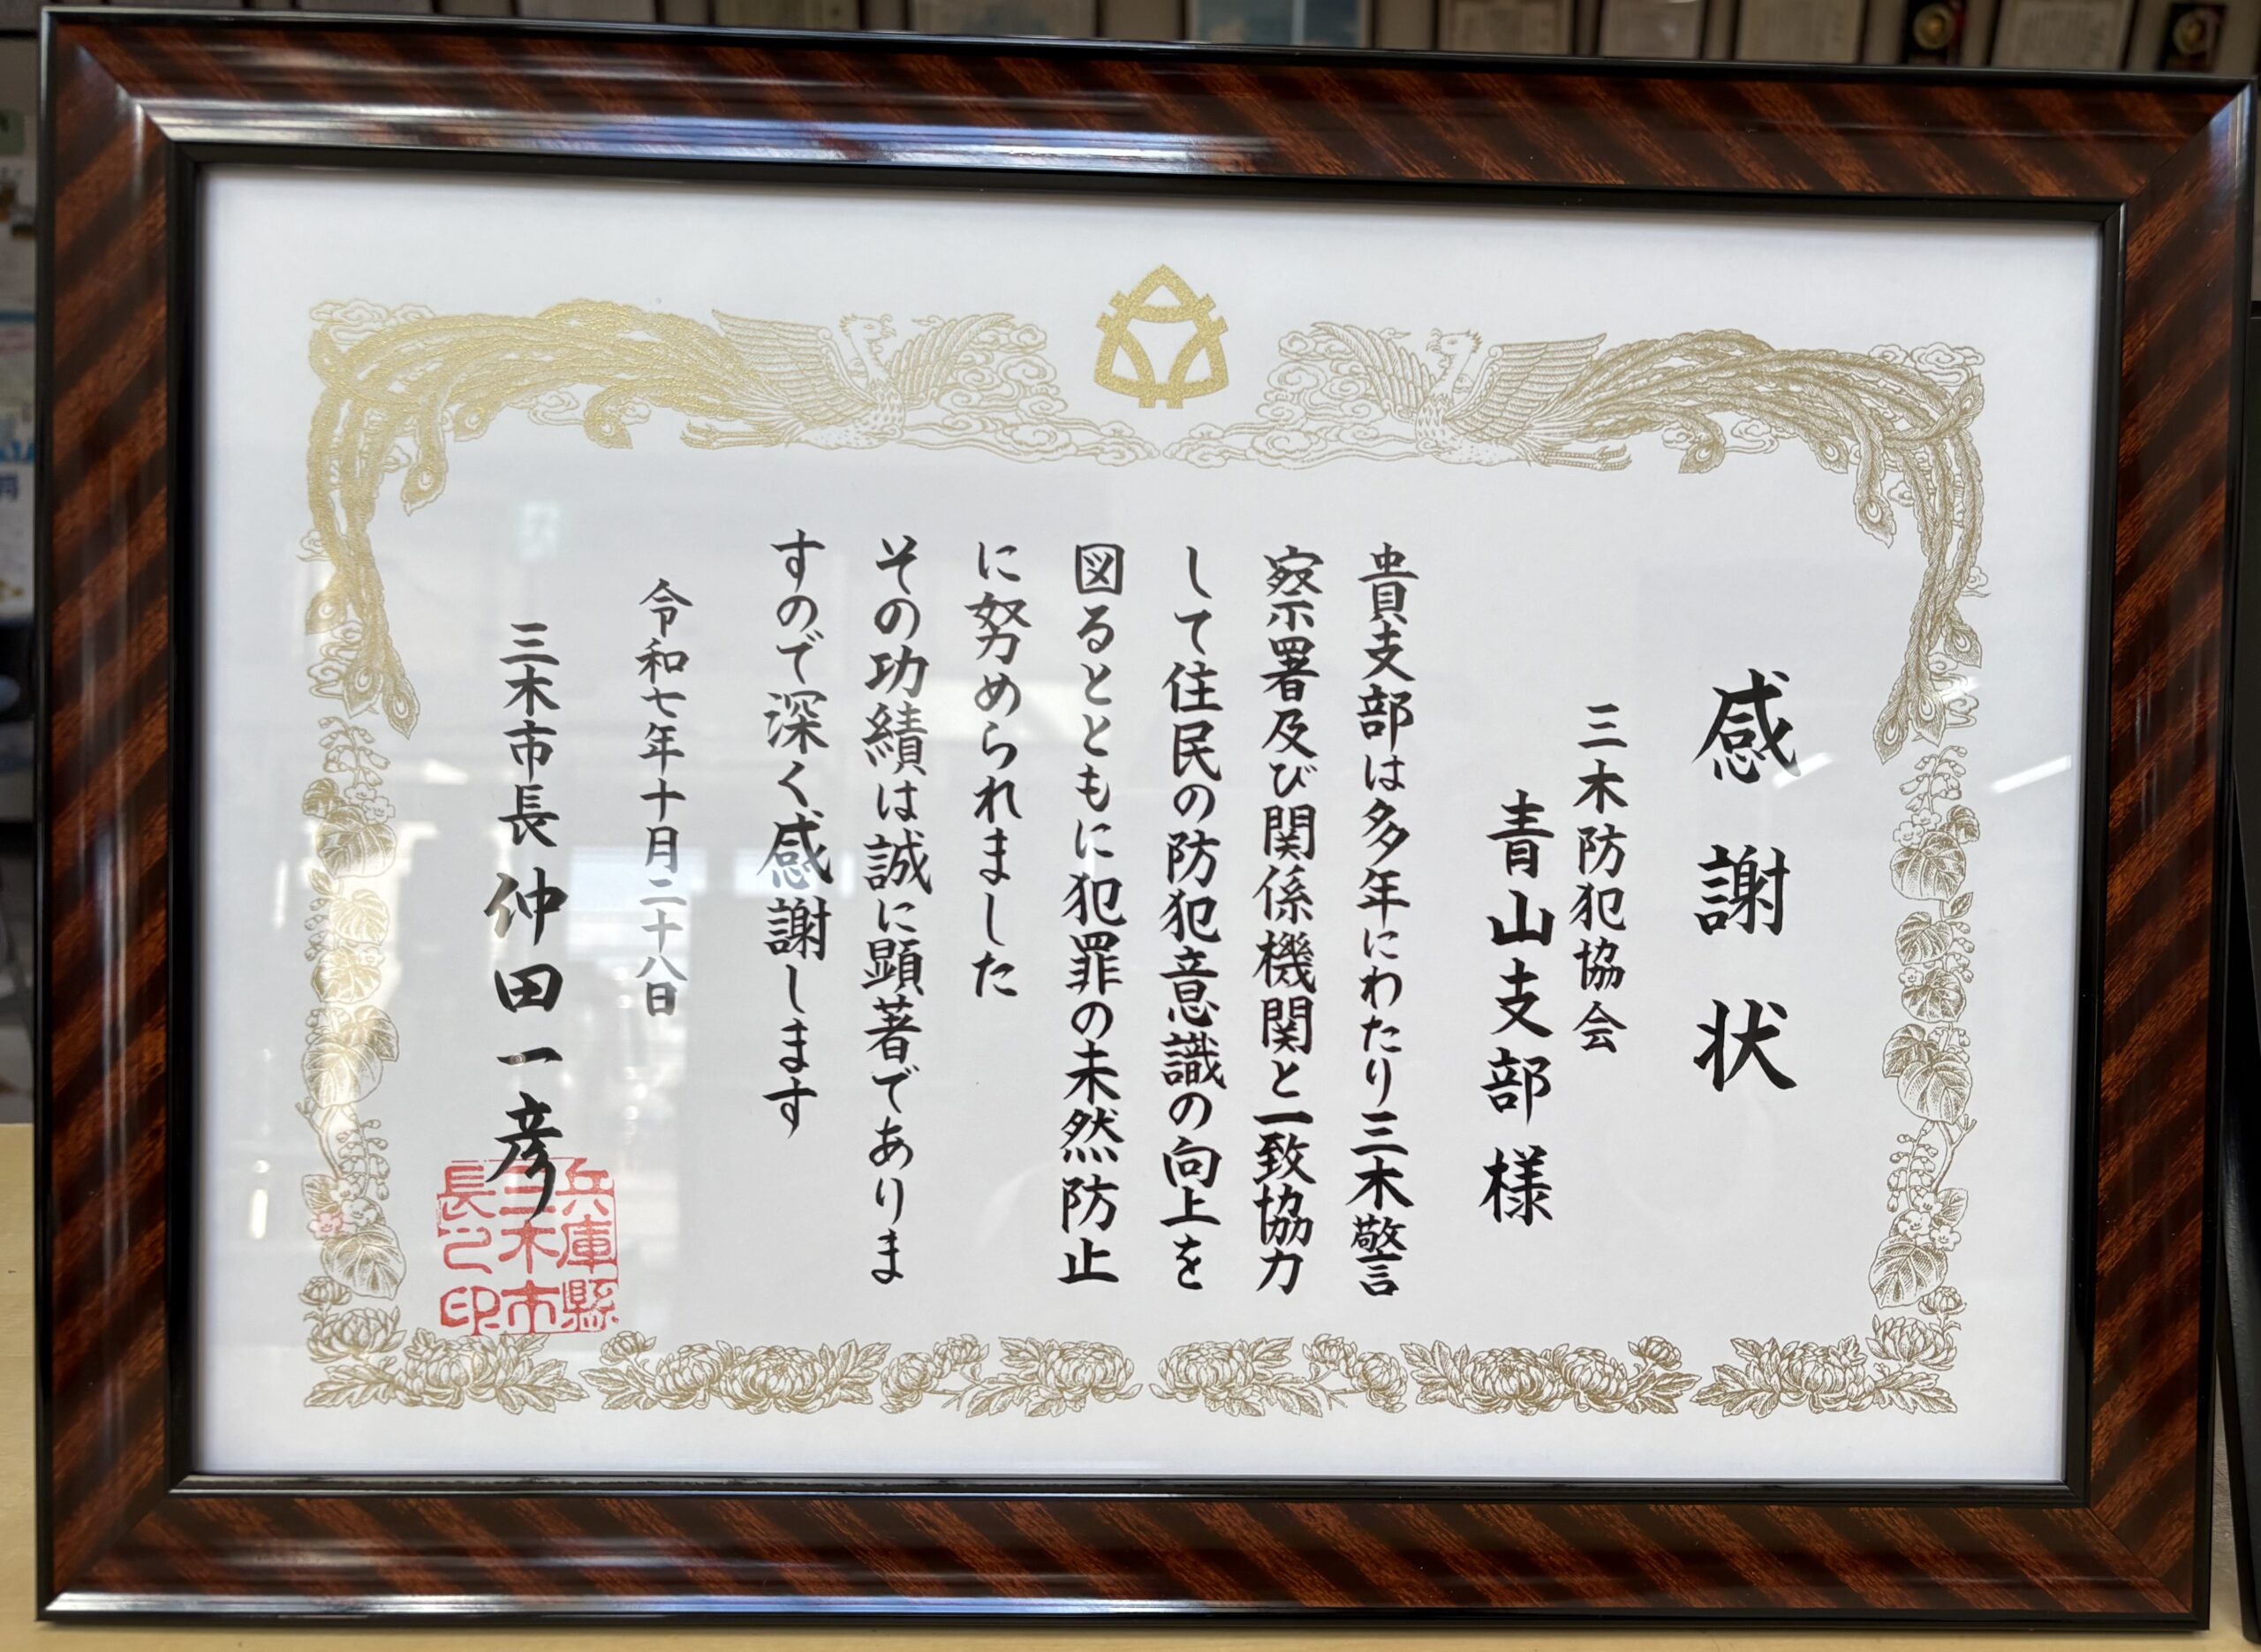 感謝状
三木防犯協会
青山支部様
貴支部は多年にわたり三木警
察署及び関係機関と一致協力
して住民の防犯意識の向上を
図るとともに犯罪の未然防止
に努められました
その功績は誠に顕著でありま
すので深く感謝します
令和七年十月二十八日
三木市長 仲田一彦
兵庫縣
三木市
長之印